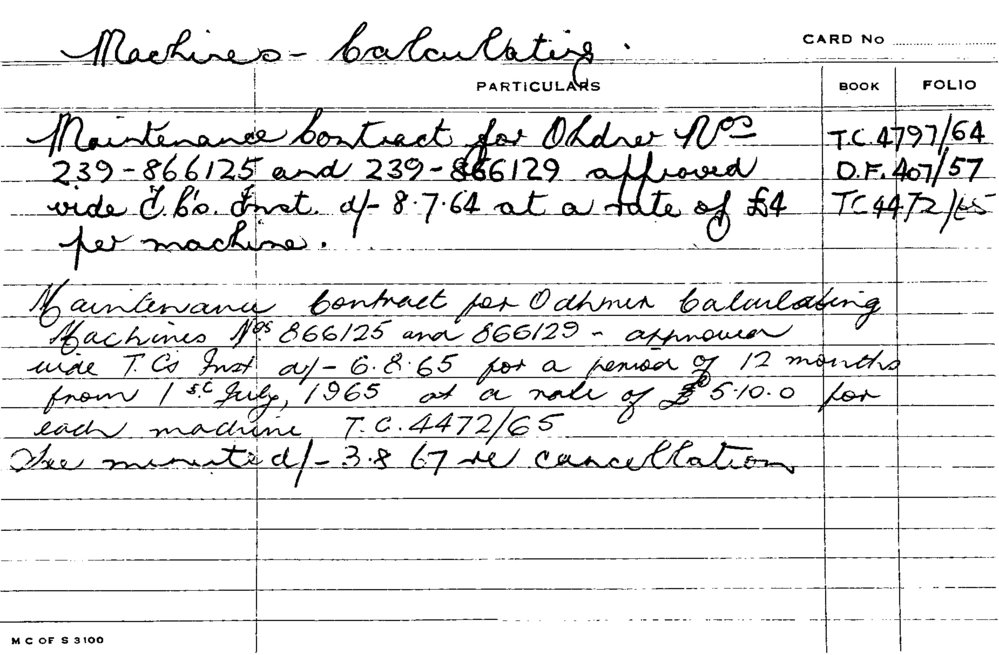 Machines - Calculating.
CARD No
PARTICULARS BOOK FOLIO
Maintenance Contract for Ohdner Nos T.C. 4797/64
239-866125 and 239-866129 approved D.F. 407/57
vide T.C's. Inst. d/- 8.7.64 at a rate of £4 TC4472/65
per machine.
Maintenance Contract for Odhner Calculating
Machines Nos 866125 and 866129 - approved
vide T.Cs Inst d/- 6.8.65 for a period of 12 months
from 1st July, 1965 at a rate of £5.10.0 for
each machine T.C. 4472/65
See minute d/- 3.8 67 re cancellation
M C OF S 3100